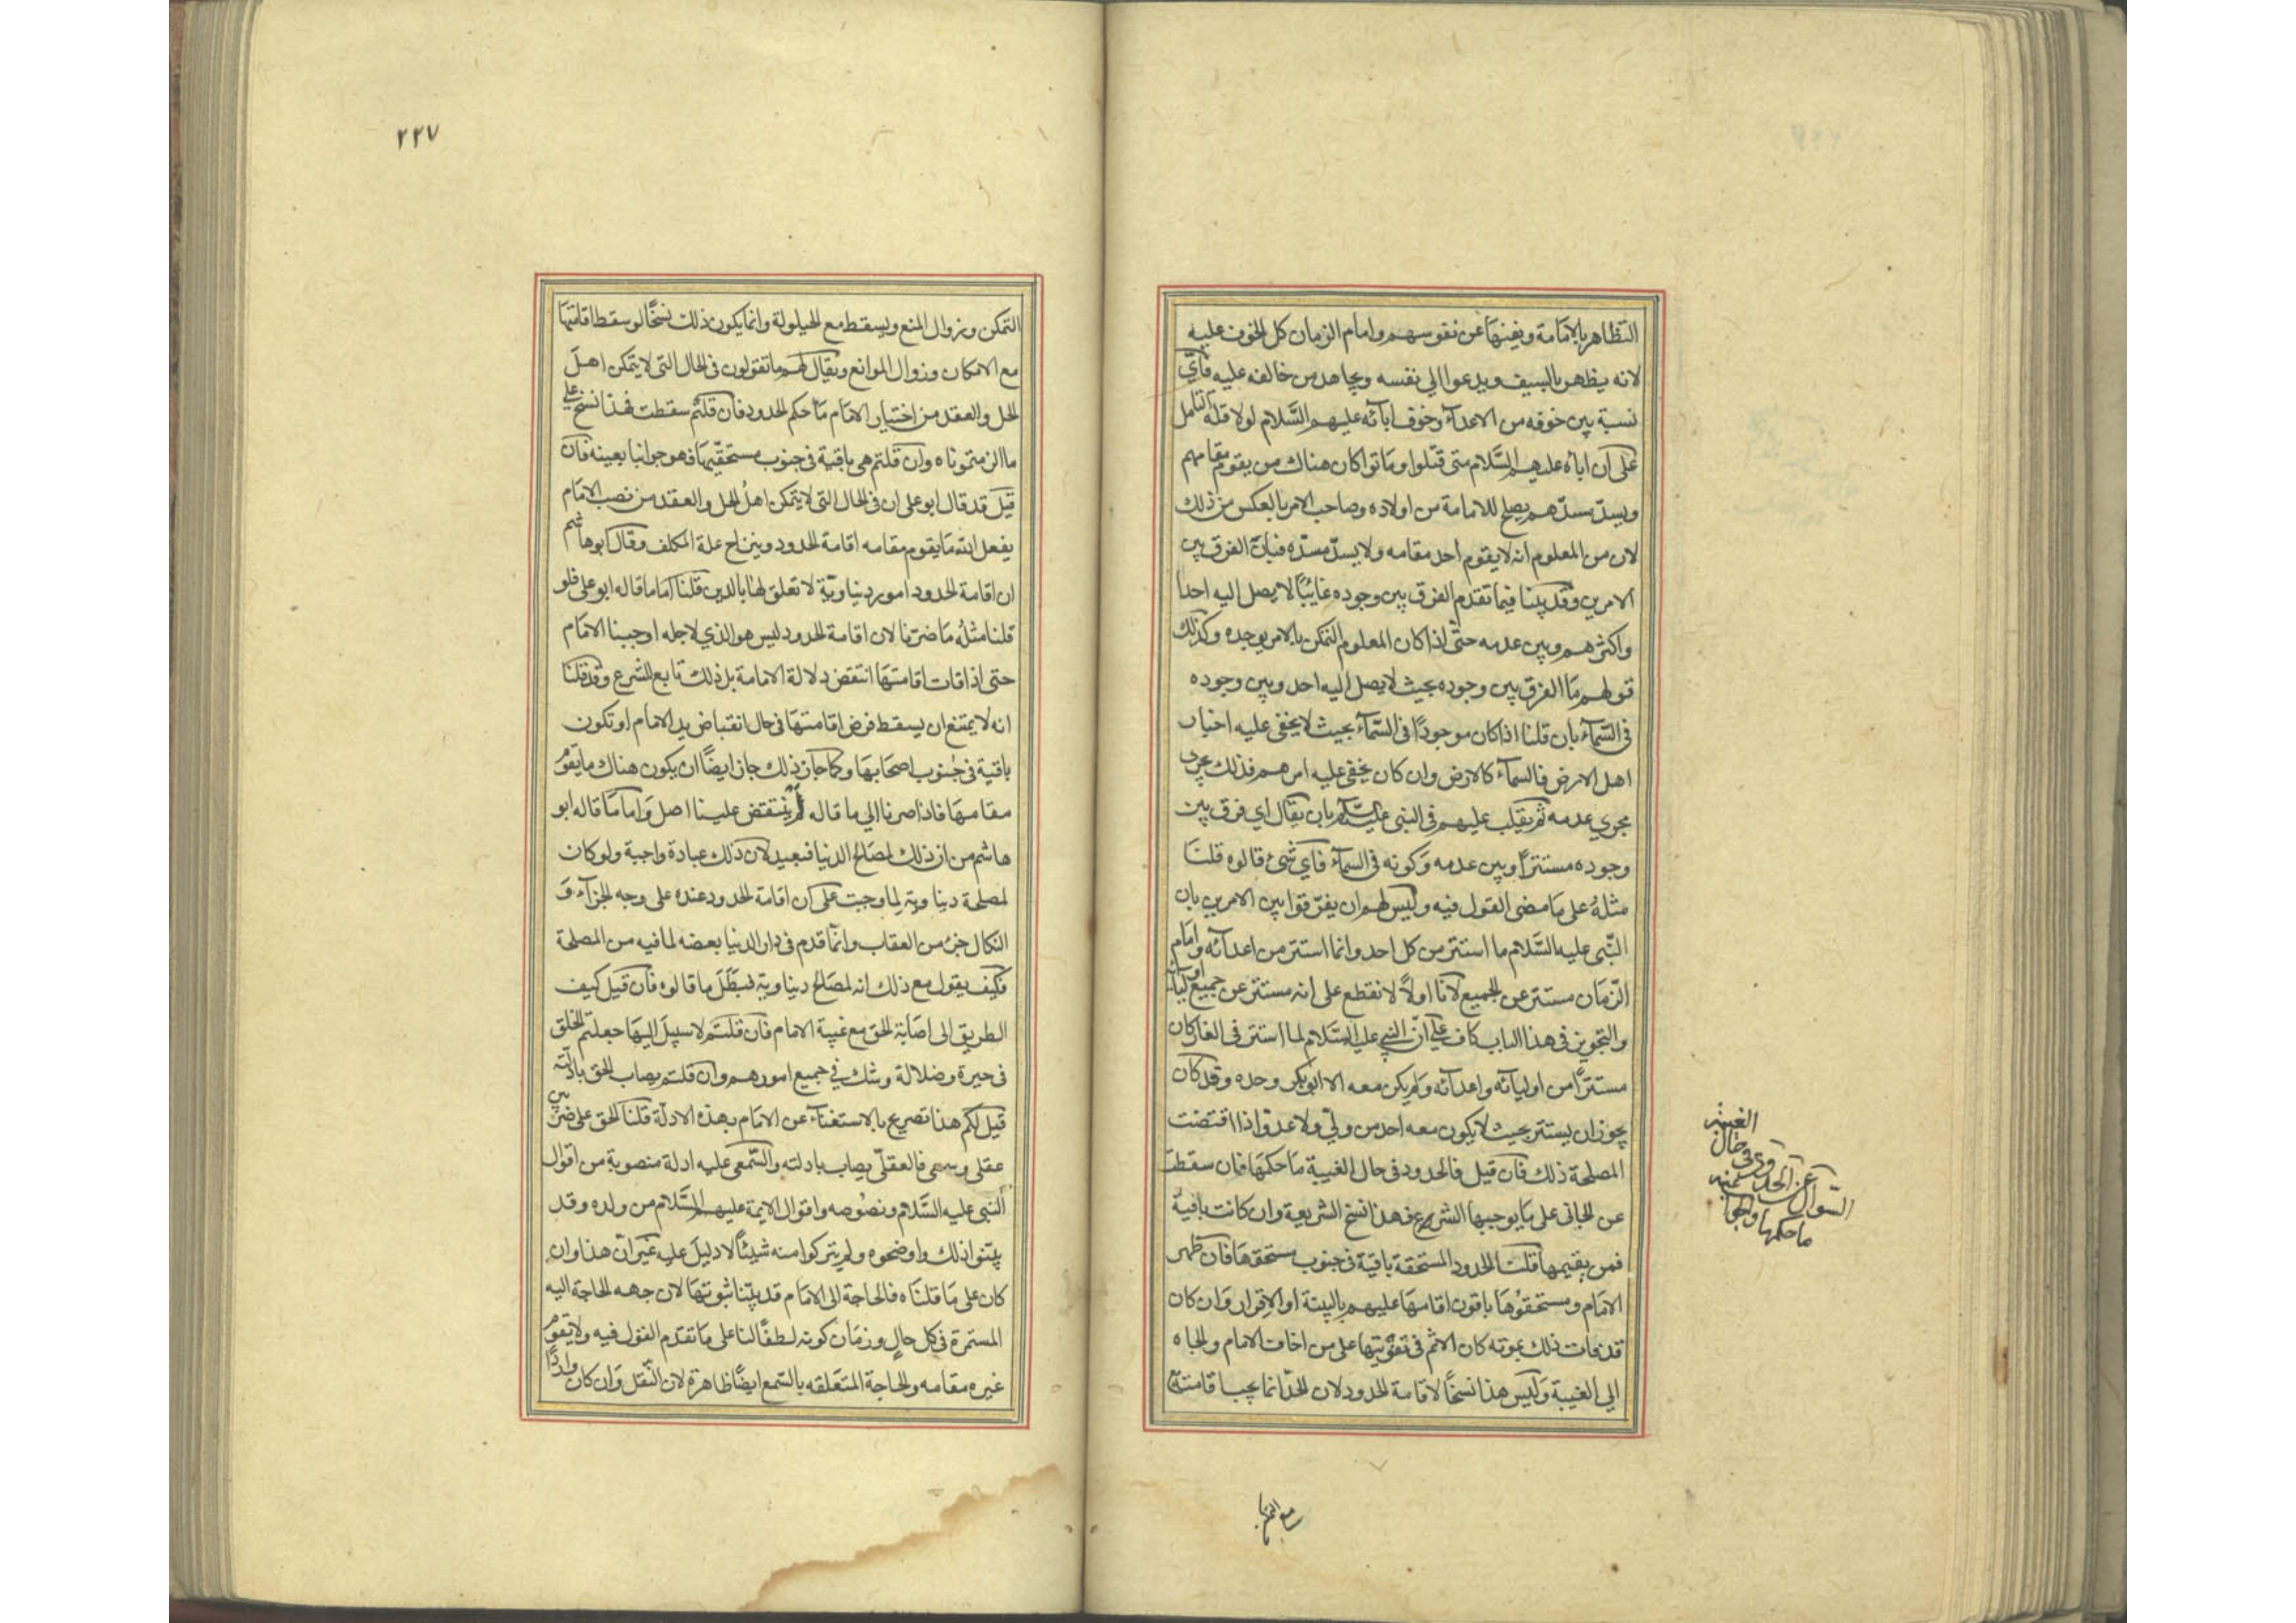 التظاهر بالامامة وينفيها عن نفوسهم وامام الزمان كل الخوف عليه
لانه يظهر بالسيف ويدعوا الي نفسه ويجاهد من خالفه عليه فايّ
نسبة بين خوفه من الاعداء وخوف ابآئه عليهم السَّلام لولا قلة التامل
على ان اباه عليهم السَّلام متى قتلوا وماتوا كان هناك من يقوم مقامهم
ويسدّ مسدّهم يصلح للامامة من اولاده وصاحب الامر بالعكس من ذلك
لان من المعلوم انه لا يقوم احد مقامه ولا يسدّ مسدّه فبان الفرق بين
الامرين وقد بينا فيما تقدم الفرق بين وجوده غايبًا لا يصل اليه احدا
واكثرهم وبين عدمه حتى اذا كان المعلوم التمكن بالامر يوجده وكذلك
قولهم ما الفرق بين وجوده بحيث لا يصل اليه احد وبين وجوده
في السّمآء بان قلنا اذا كان موجودًا في السّمآء بحيث لا يخفى عليه اخبار
اهل الارض فالسمآء كالارض وان كان يخفى عليه امرهم فذلك يجري
مجري عدمه ثم يقلب عليهم في النبي عليه السّلم بان يقال اي فرق بين
وجوده مستترًا وبين عدمه وكونه في السمآء فاي شئ قالوه قلنا
مثلهُ على ما مضى القول فيه وليس لهم ان يفرّقوا بين الامرين بان
النّبي عليه السَّلام ما استتر من كل احد وانما استتر من اعدآئه وامام
الزّمان مستتر عن الجميع لانا اولاً لا نقطع على انه مستتر عن جميع اوليائه
والتجويز في هذا الباب كاف على انّ النبي عليه السَّلام لما استتر في الغار كان
مستترًا من اوليآئه واعدآئه ولم يكن معه الا ابو بكر وحده وقد كان
يجوز ان يستتر بحيث لا يكون معه احد من ولّي ولا عدوّ اذا اقتضت
المصلحة ذلك فان قيل فالحدود في حال الغيبة ما حكمها فان سقطت
عن الجاني على ما يوجبها الشرع فهذا نسخ الشريعة وان كانت باقية
فمن يقيمها قلنا الحدود المستحقة باقية في جنوب مستحقها فان ظهر
الامام ومستحقوُها باقون اقامها عليهم بالبينة او الاقرار وان كان
قد فات ذلك بموته كان الاثم في تفويتها على من اخاف الامام والجاه
الي الغيبة وليس هذا نسخًا لاقامة الحدود لان الحدّ انما يجب اقامته مع
السّوال عن الحدود في حال الغيبة
ما حكمها
مع التمكن
٢٢٧
التمكن وزوال المنع ويسقط مع الحيلولة وانما يكون ذلك نسخًا لو سقط اقامتها
مع الامكان وزوال الموانع ويقال لهم ما تقولون في الحال التى لا يتمكن اهل
الحل والعقد من اختيار الامام ما حكم الحدود فان قلتم سقطت فهذا نسخ على
ما الزمتموناه وان قلتم هي باقية في جنوب مستحقّيها فهو جوابنا بعينه فان
قيل قد قال ابو علي ان في الحال التى لا يتمكن اهلُ الحل والعقد من نصب الامام
يفعل الله ما يقوم مقامه اقامة الحدود وينزاح علة المكلف وقال ابو هاشم
ان اقامة الحدود امور دنياويّة لا تعلق لها بالدين قلنا اما ما قاله ابو علي فلو
قلنا مثلُه ما ضرّنا لان اقامة الحدود ليس هو الذي لاجله اوجبنا الامام
حتى اذا فات اقامتها انتقض دلالة الامامة بل ذلك تابع للشرع وقد قلنا
انه لا يمتنع ان يسقط فرض اقامتها في حال انقباض يد الامام او تكون
باقية في جُنوب اصحابها وكما جاز ذلك جاز ايضًا ان يكون هناك ما يقوم
مقامها فاذا صرنا الي ما قاله لم ينتقض علينا اصل واما ما قاله ابو
هاشم من ان ذلك لمصالح الدنيا فبعيد لان ذلك عبادة واجبة ولو كان
لمصلحة دنياوية لما وجبت على ان اقامة الحدود عنده على وجه الجزآء و
النكال جزء من العقاب وانما قدم في دار الدنيا بعضه لما فيه من المصلحة
فكيف يقول مع ذلك انه لمصالح دنياوية فبطل ما قالوه فان قيل كيف
الطريق الى اصابة الحق مع غيبة الامام فان قلتم لا سبيل اليها جعلتم الخلق
في حيرة وضلالة وشك في جميع امورهم وان قلتم يصاب الحق بادلّته
قيل لكم هذا تصريح بالاستغنآء عن الامام بهذه الادلة قلنا الحق على ضربين
عقلي وسمعي فالعقلّي يصاب بادلته والسّمعي عليه ادلة منصوبة من اقوال
النبي عليه السَّلام ونصُوصه واقوال الايمة عليهم السَّلام من ولده وقد
بيّنوا ذلك واوضحوه ولم يتركوا منه شيئًا لا دليل عليه غير انّ هذا وان
كان على ما قلناه فالحاجة الى الامام قد بيّنا ثبوتها لان جهه الحاجة اليه
المستمرة في كل حالٍ وزمان كونه لطفًا لنا على ما تقدّم القول فيه ولا يقوم
غيره مقامه والحاجة المتعلقه بالسّمع ايضًا ظاهرة لان النّقل وان كان واردًا